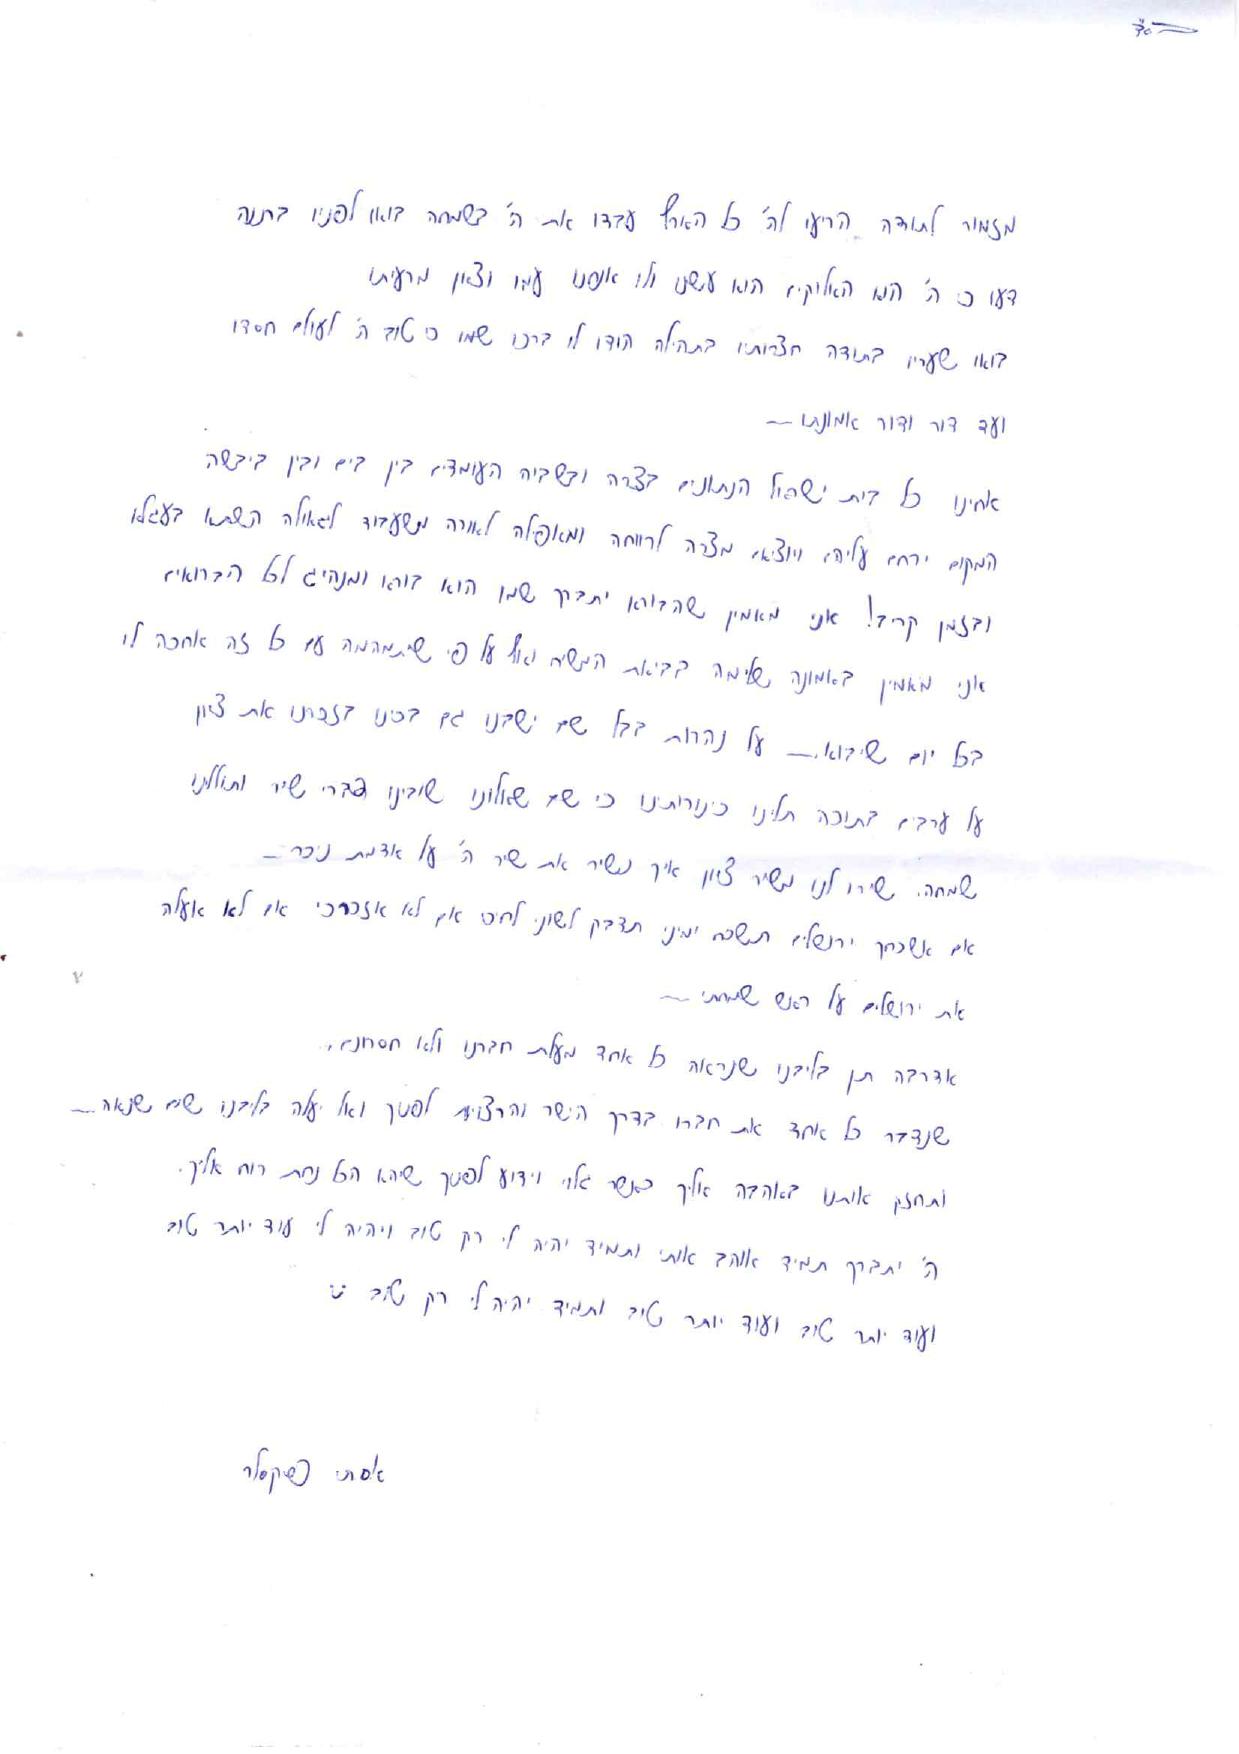 בס"ד
מזמור לתודה הריעו לה' כל הארץ עבדו את ה' בשמחה בואו לפניו ברננה
דעו כי ה' הוא האלוקים הוא עשנו ולו אנחנו עמו וצאן מרעיתו
בואו שעריו בתודה חצרותיו בתהילה הודו לו ברכו שמו כי טוב ה' לעולם חסדו
ועד דור ודור אמונתו ~
אחינו כל בית ישראל הנתונים בצרה ובשביה העומדים בין בים ובין ביבשה
המקום ירחם עליהם ויוציאם מצרה לרווחה ומאפילה לאורה משעבוד לגאולה השתא בעגלא
ובזמן קריב! אני מאמין שהבורא יתברך שמו הוא בורא ומנהיג לכל הברואים
אני מאמין באמונה שלימה בביאת המשיח ואף על פי שיתמהמה עם כל זה אחכה לו
בכל יום שיבוא. ~ על נהרות בבל שם ישבנו גם בכינו בזכרנו את ציון
על ערבים בתוכה תלינו כינורותינו כי שם שאלונו שובינו דברי שיר ותוללינו
שמחה. שירו לנו משיר ציון איך נשיר את שיר ה' על אדמת ניכר ~
אם אשכחך ירושלים תשכח ימיני תדבק לשוני לחיכי אם לא אזכרכי אם לא אעלה
את ירושלים על ראש שמחתי ~
אדרבה תן בליבנו שנראה כל אחד מעלת חברנו ולא חסרונם,
שנדבר כל אחד את חברו בדרך הישר והרצוי לפניך ואל יעלה בליבנו שום שנאה ~
ותחזק אותנו באהבה אליך כאשר גלוי וידוע לפניך שיהא הכל נחת רוח אליך.
ה' יתברך תמיד אוהב אותי ותמיד יהיה לי רק טוב ויהיה לי עוד יותר טוב
ועוד יותר טוב ועוד יותר טוב ותמיד יהיה לי רק טוב
אסתי